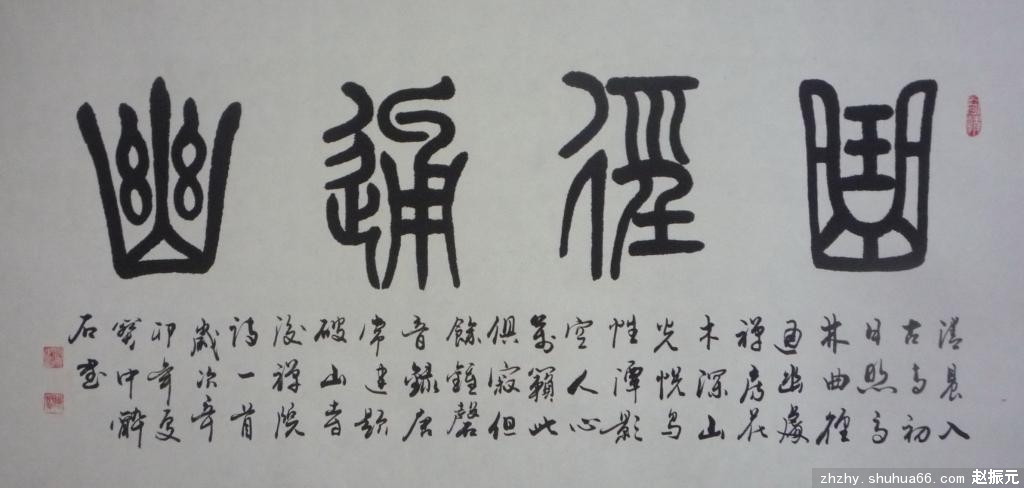 曲徑通幽
清晨入
古寺初
日照高
林曲徑
通幽處
禪房花
木深山
光悦鳥
性潭影
空人心
萬籟此
俱寂但
餘鐘磬
音錄唐
常建題
破山寺
後禪院
詩一首
歲次辛
卯年夏
中醉
石書
zhzhy.shuhua66.com 赵振元